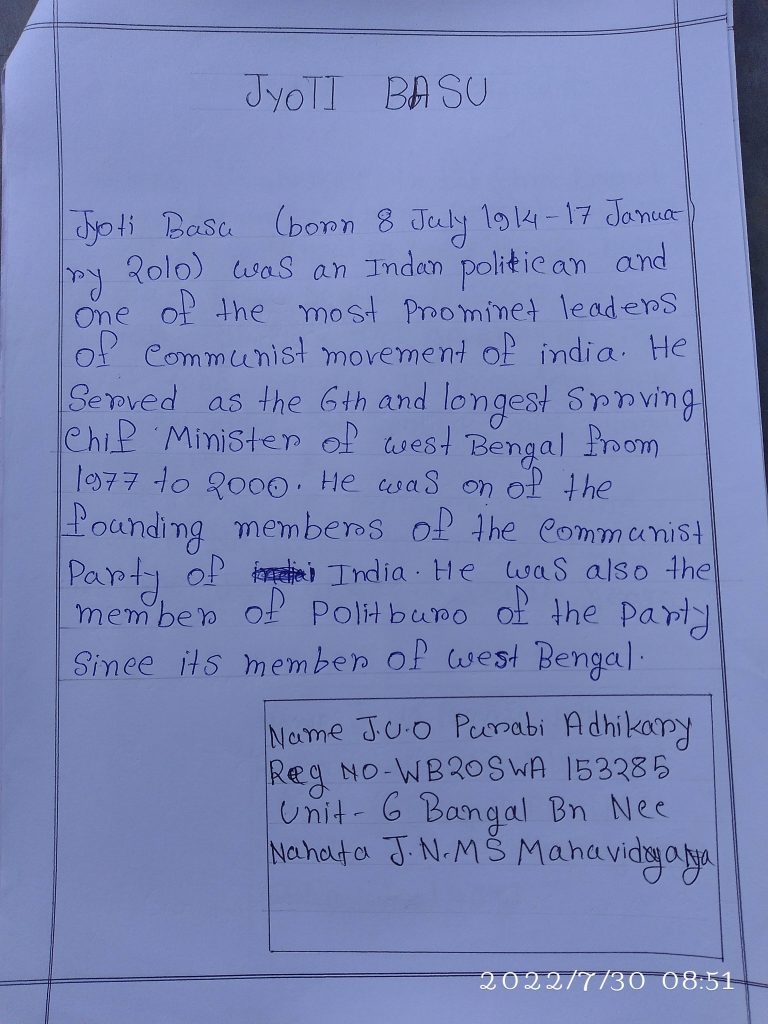 JYOTI BASU
Jyoti Basu (born 8 July 1914-17 Janua
ry 2010) was an Indan politician and
one of the most Prominet leaders
of Communist movement of india. He
Served as the 6th and longest Srrving
Chif Minister of west Bengal from
1977 to 2000. He was on of the
founding members of the Communist
Party of India. He was also the
member of Politburo of the Party
Since its member of west Bengal.
Name J.U.O Purabi Adhikary
Reg NO-WB20SWA 153285
Unit- 6 Bangal Bn Ncc
Nahata J.N.MS Mahavidyalaya
2022/7/30 08:51